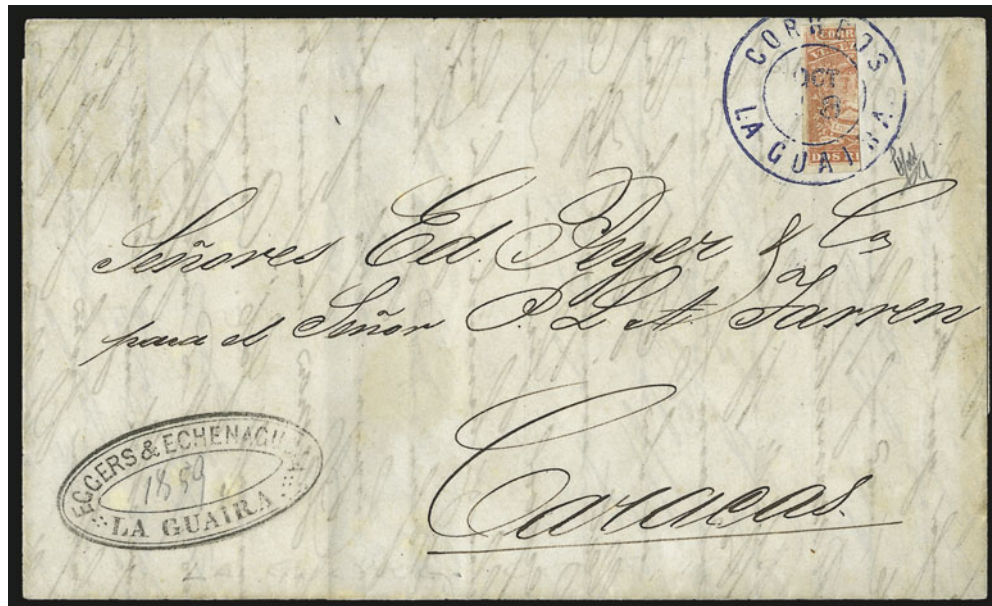 CORREOS
OCT
LA GUAIRA
CORR
VENEZ
DOS
Señores Ed. Peyer & Ca
para el Señor P. L. A. Farren
Caracas.
EGGERS & ECHENAGU
1859
LA GUAIRA